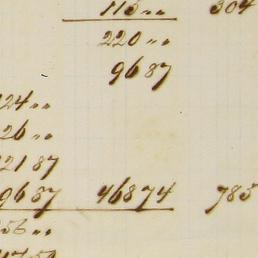 115 " 304
220 "
96 87
24 "
26 "
21 87
96 87 468 74 785
56 "